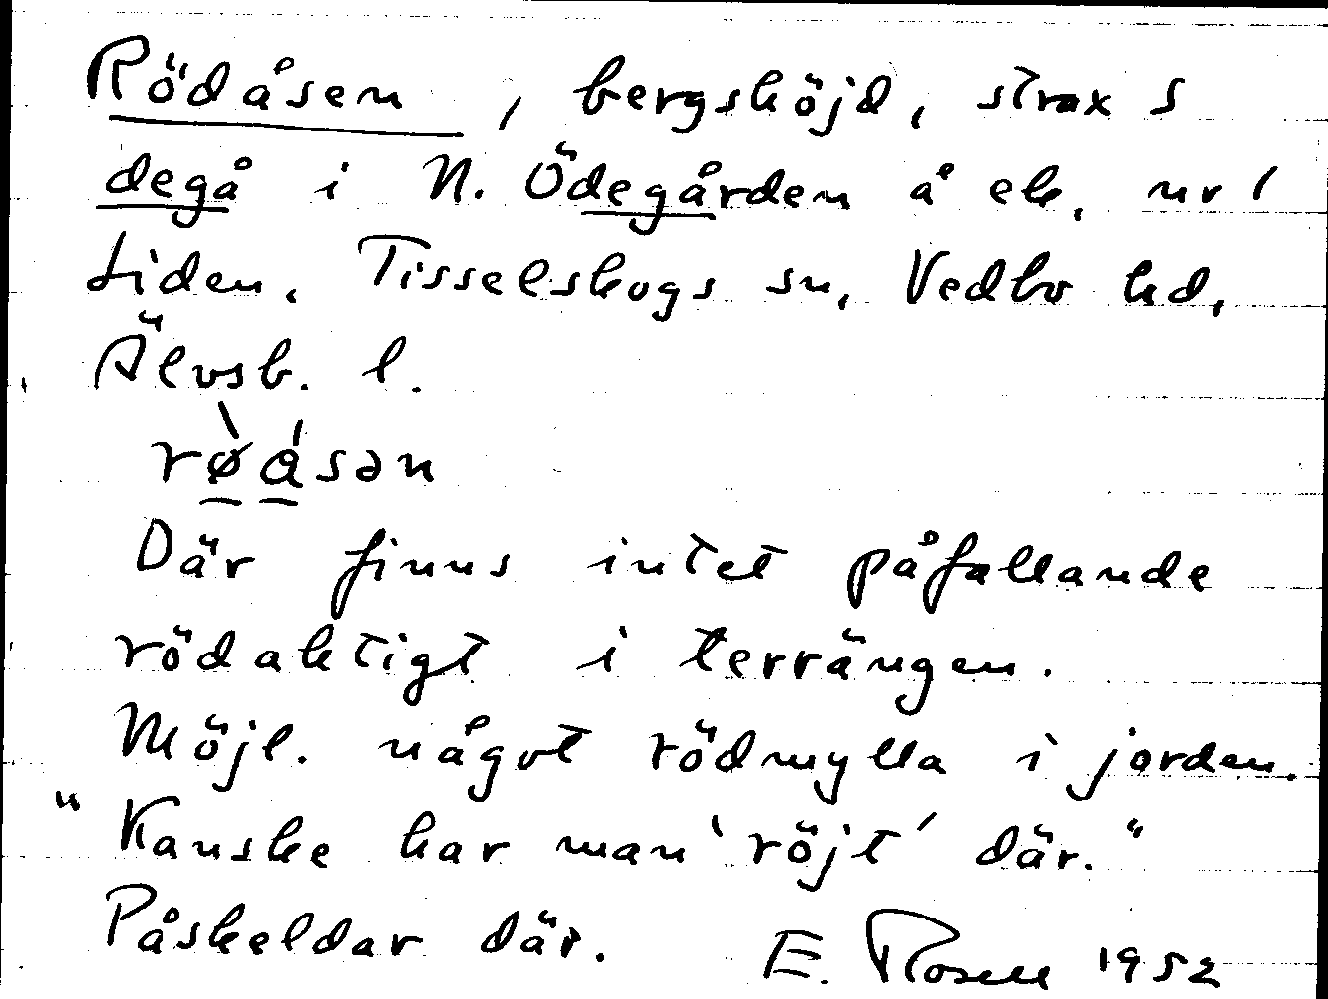 Rödåsen, bergshöjd, strax S
degå i N. Ödegården å ek. nr 1
Liden. Tisselskogs sn, Vedbo hd,
Älvsb. l.
rø̀ásən
Där finns intet påfallande
rödaktigt i terrängen.
Möjl. något rödmylla i jorden.
"Kanske har man 'röjt' där."
Påskeldar där. E. Rosell 1952